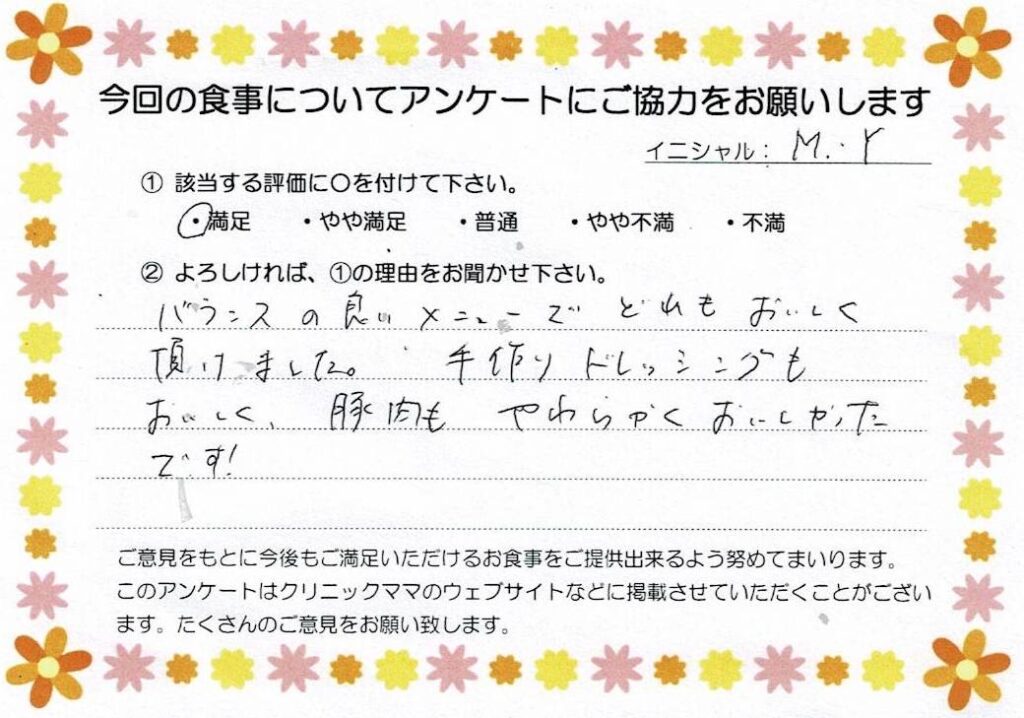 今回の食事についてアンケートにご協力をお願いします
イニシャル： M.Y
① 該当する評価に〇を付けて下さい。
・満足 ・やや満足 ・普通 ・やや不満 ・不満
② よろしければ、①の理由をお聞かせ下さい。
バランスの良いメニューでどれもおいしく
頂けました。 手作りドレッシングも
おいしく、豚肉も やわらかくおいしかった
です!
ご意見をもとに今後もご満足いただけるお食事をご提供出来るよう努めてまいります。
このアンケートはクリニックママのウェブサイトなどに掲載させていただくことがござい
ます。たくさんのご意見をお願い致します。